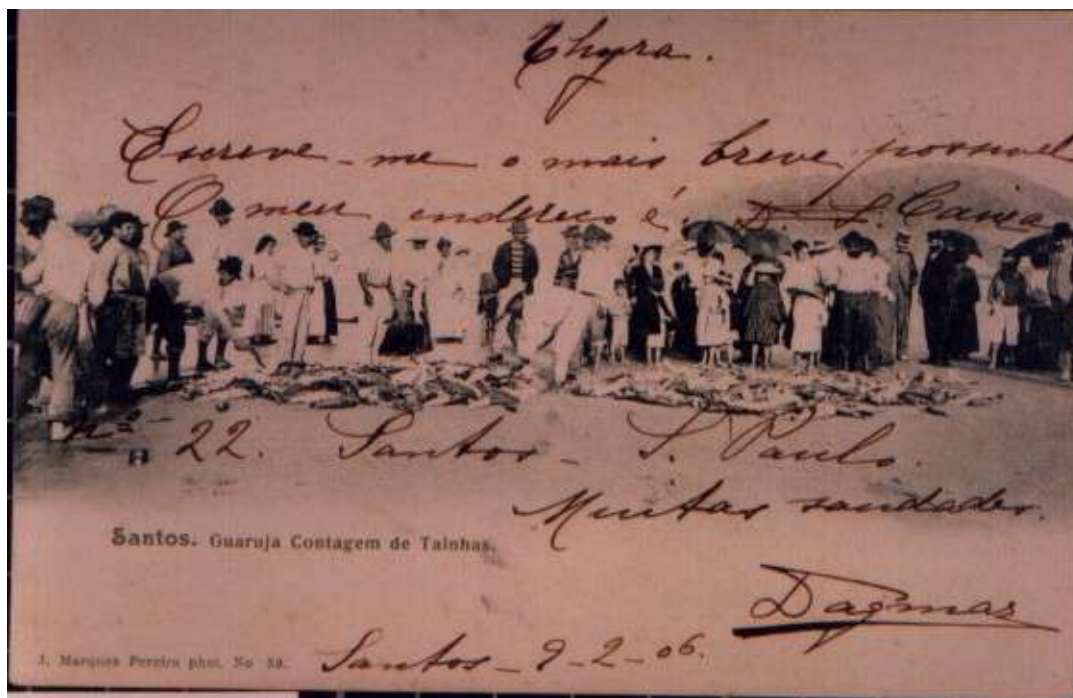 Thyra.
Escreve-me o mais breve possivel
O meu endereço é D. S. Caixa
nº 22. Santos - S. Paulo.
Muitas saudades.
Santos. Guaruja Contagem de Tainhas.
Dagmar
J. Marques Pereira phot. No 58.
Santos - 9-2-06.